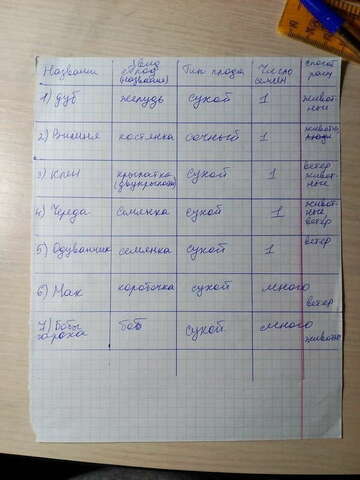 Названия Плод (название) Тип плода Число семен способ расп
1) дуб желудь сухой 1 живот-
ные
2) Вишня костянка сочный 1 животн.
3) Клен крылатка (двукрылатка) сухой 1 ветер
живот-
ные
4) Череда семянка сухой 1 живот-
ные
ветер
5) Одуванчик семянка сухой 1 ветер
6) Мак коробочка сухой много ветер
7) Бобы
гороха боб сухой много животн